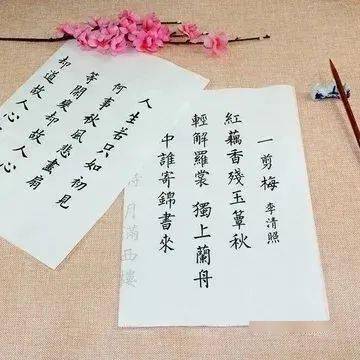 一剪梅 李清照
紅藕香殘玉簟秋
輕解羅裳 獨上蘭舟
中誰寄錦書來
月滿西樓
人生若只如初見
何事秋風悲畫扇
等閒變却故人心
却道故人心